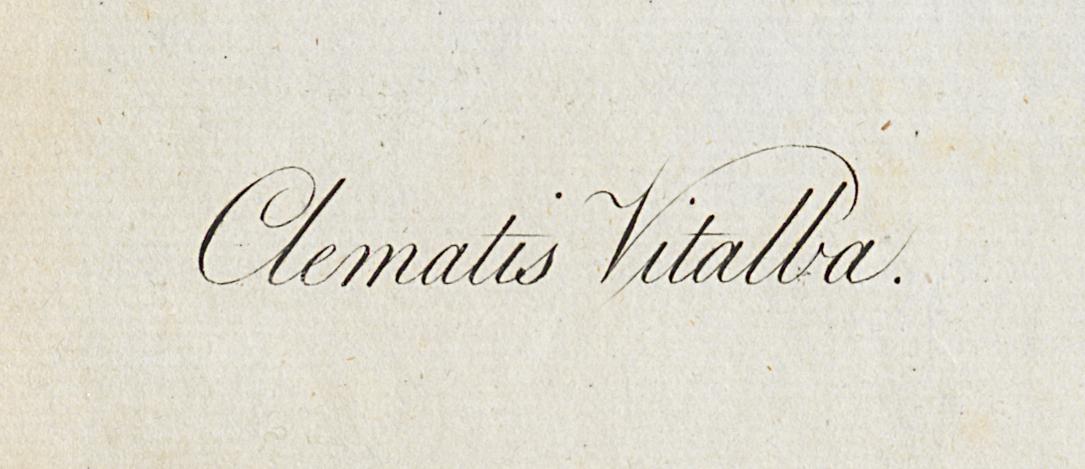 Clematis Vitalba.